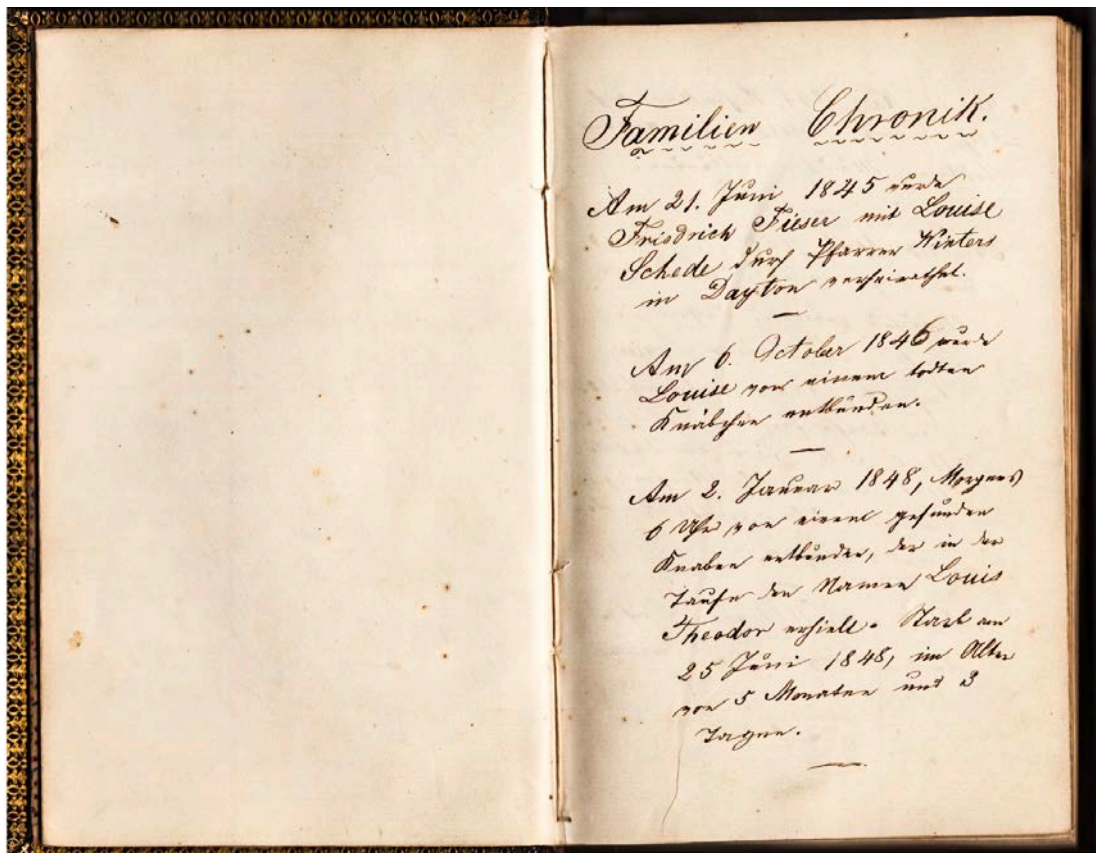 Familien Chronik.
Am 21. Juni 1845 wurde
Friedrich Fieser mit Louise
Schede durch Pfarrer Winters
in Dayton verheirathet.
Am 6. October 1846 wurde
Louise von einem todten
Knäbchen entbunden.
Am 2. Januar 1848, Morgens
6 Uhr von einem gesunden
Knaben entbunden, der in der
Taufe den Namen Louis
Theodor erhielt. Starb am
25 Juni 1848, im Alter
von 5 Monaten und 3
Tagen.